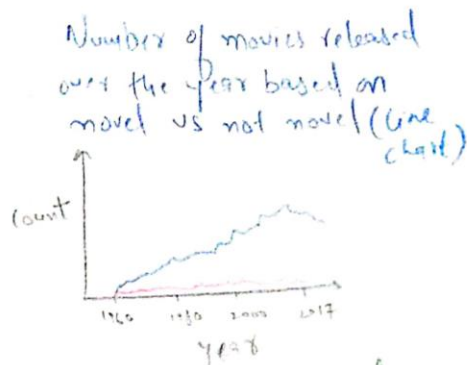 Number of movies released
over the year based on
novel vs not novel (Line
chart)
count
1960 1980 2000 2017
year